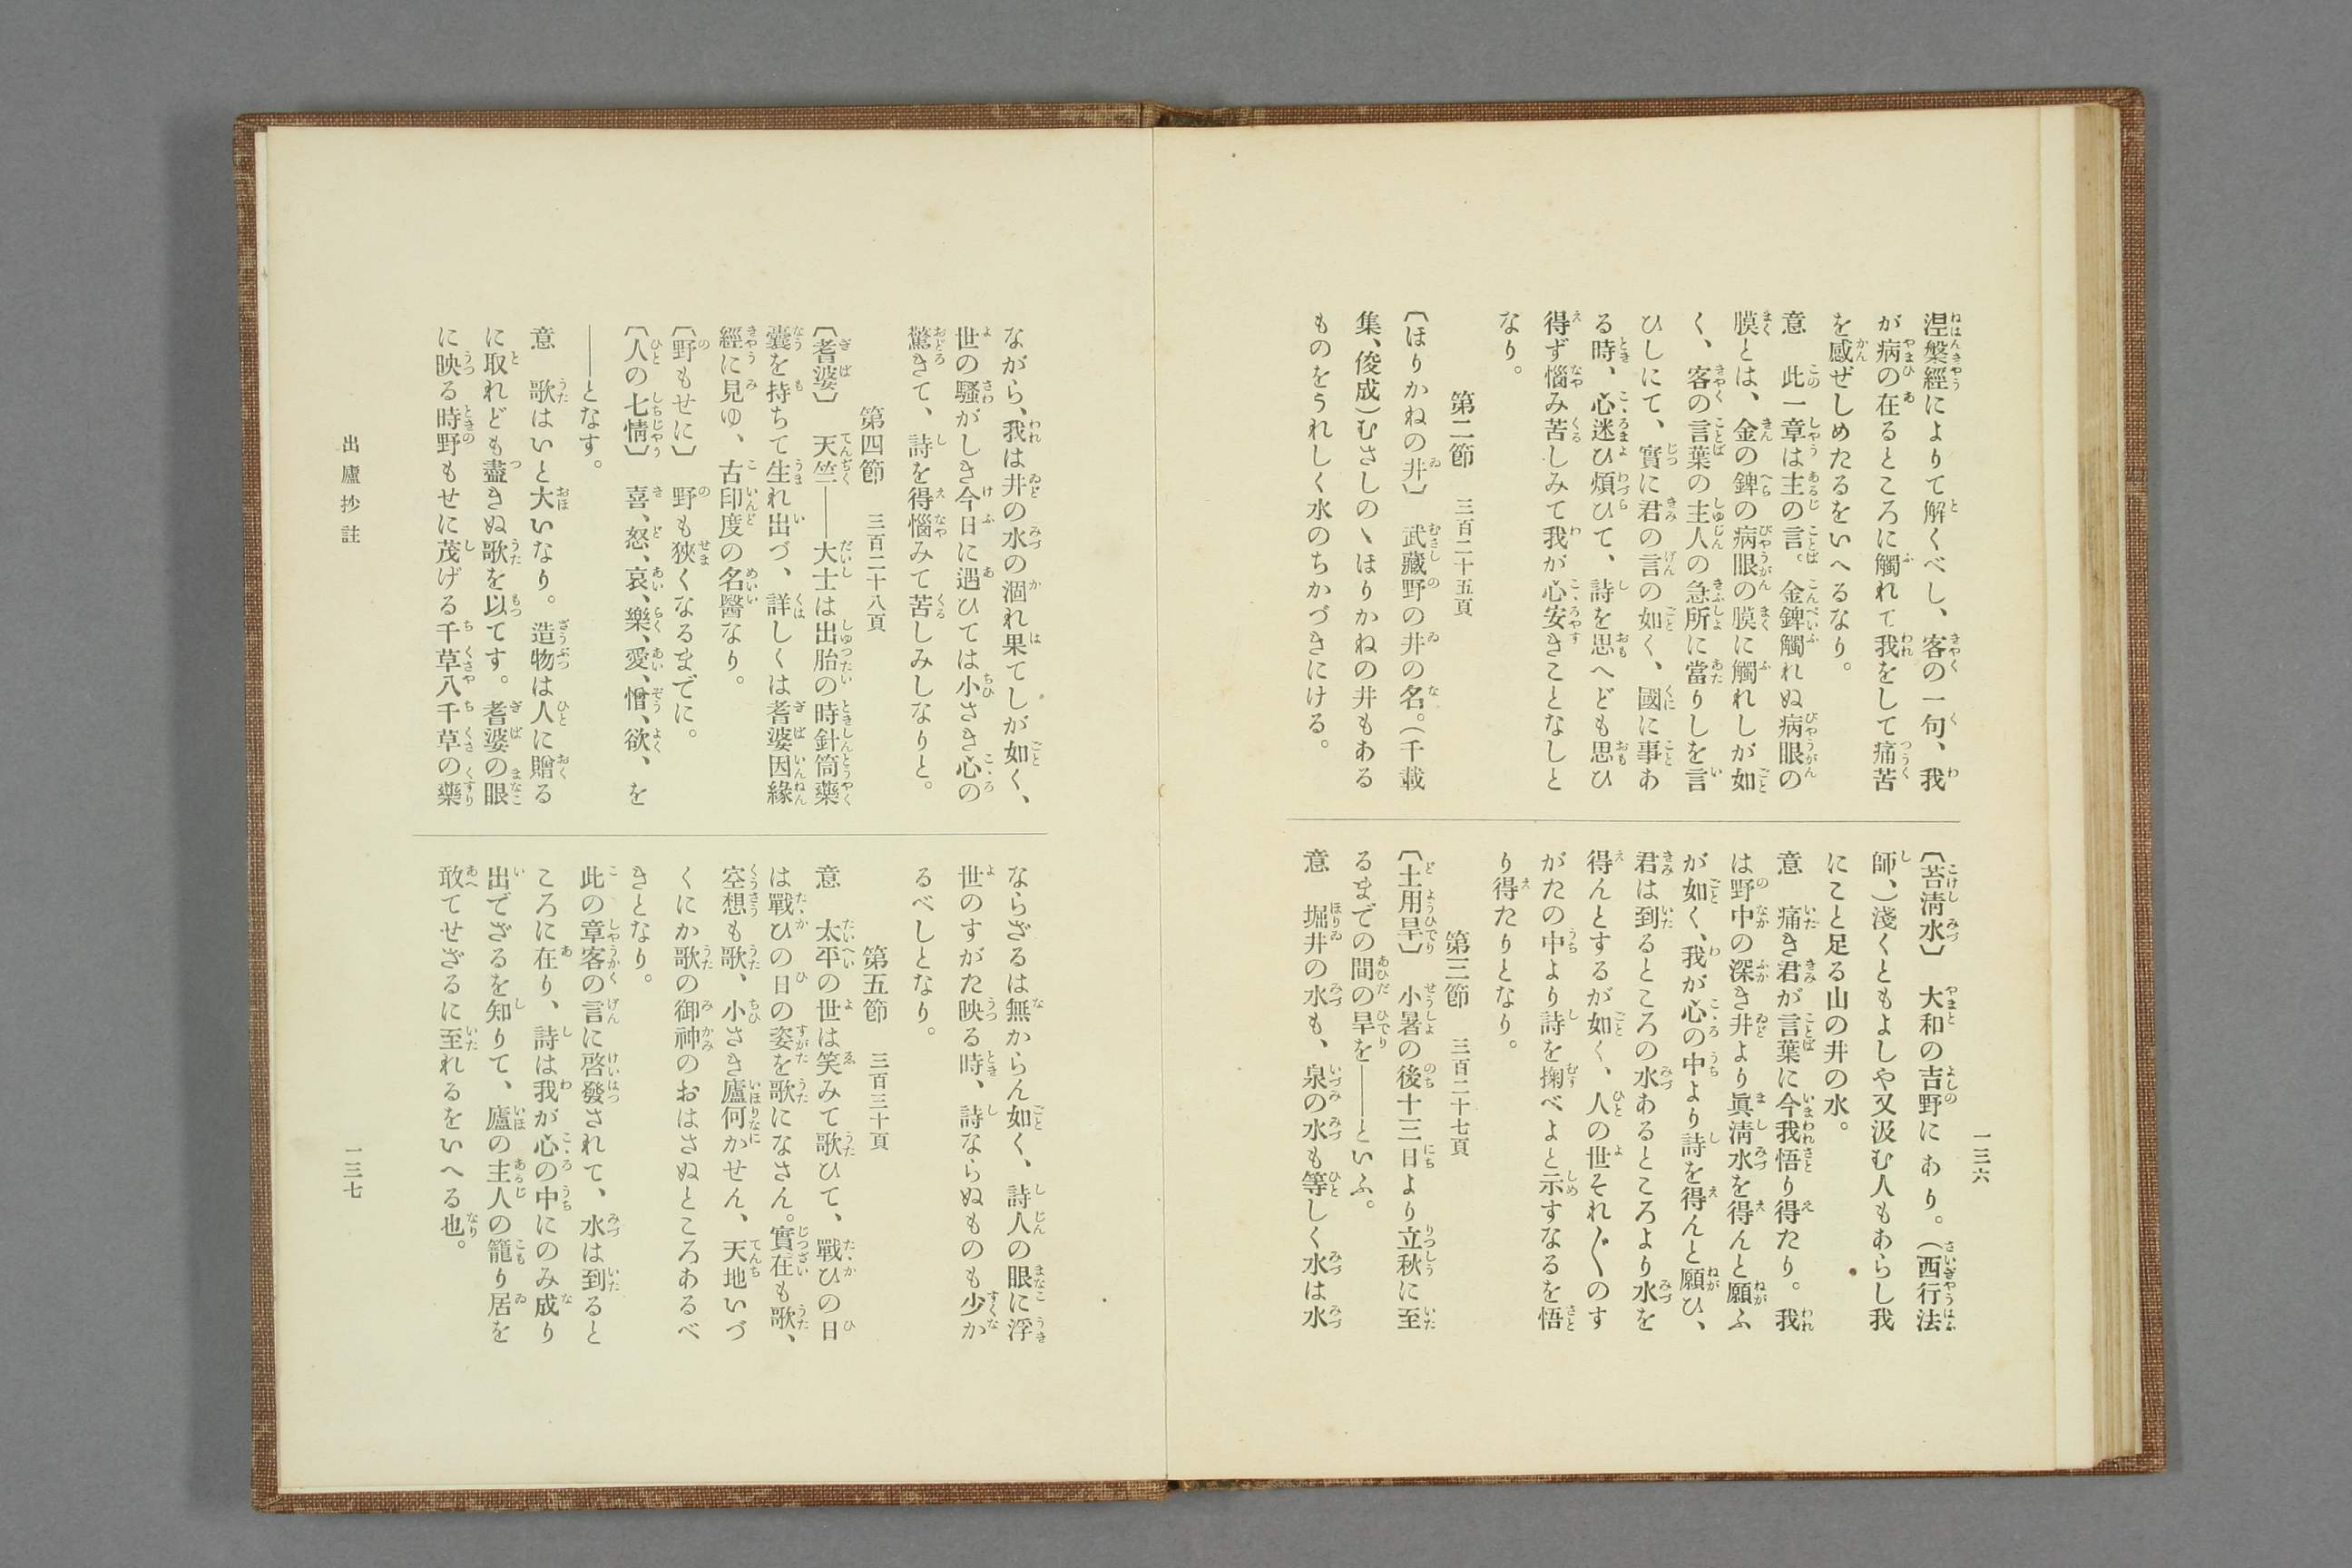 一三六
涅槃經によりて解くべし、客の一句、我
が病の在るところに觸れて我をして痛苦
を感ぜしめたるをいへるなり。
意　此一章は主の言。金錍觸れぬ病眼の
膜とは、金の錍の病眼の膜に觸れしが如
く、客の言葉の主人の急所に當りしを言
ひしにて、實に君の言の如く、國に事あ
る時、心迷ひ煩ひて、詩を思へども思ひ
得ず惱み苦しみて我が心安きことなしと
なり。
第二節　三百二十五頁
〔ほりかねの井〕　武藏野の井の名。（千載
集、俊成）むさしのゝほりかねの井もある
ものをうれしく水のちかづきにける。
〔苔淸水〕　大和の吉野にあり。（西行法
師、）淺くともよしや又汲む人もあらし我
にこと足る山の井の水。
意　痛き君が言葉に今我悟り得たり。我
は野中の深き井より眞淸水を得んと願ふ
が如く、我が心の中より詩を得んと願ひ、
君は到るところの水あるところより水を
得んとするが如く、人の世それ〴〵のす
がたの中より詩を掬べよと示すなるを悟
り得たりとなり。
第三節　三百二十七頁
〔土用旱〕　小暑の後十三日より立秋に至
るまでの間の旱を――といふ。
意　堀井の水も、泉の水も等しく水は水
ながら、我は井の水の涸れ果てしが如く、
世の騷がしき今日に遇ひては小さき心の
驚きて、詩を得惱みて苦しみしなりと。
第四節　三百二十八頁
〔耆婆〕　天竺――大士は出胎の時針筒藥
囊を持ちて生れ出づ、詳しくは耆婆因緣
經に見ゆ、古印度の名醫なり。
〔野もせに〕　野も狹くなるまでに。
〔人の七情〕　喜、怒、哀、樂、愛、憎、欲、を
――となす。
意　歌はいと大いなり。造物は人に贈る
に取れども盡きぬ歌を以てす。耆婆の眼
に映る時野もせに茂げる千草八千草の藥
ならざるは無からん如く、詩人の眼に浮
世のすがた映る時、詩ならぬものも少か
るべしとなり。
第五節　三百三十頁
意　太平の世は笑みて歌ひて、戰ひの日
は戰ひの日の姿を歌になさん。實在も歌、
空想も歌、小さき廬何かせん、天地いづ
くにか歌の御神のおはさぬところあるべ
きとなり。
此の章客の言に啓發されて、水は到ると
ころに在り、詩は我が心の中にのみ成り
出でざるを知りて、廬の主人の籠り居を
敢てせざるに至れるをいへる也。
出廬抄註
一三七